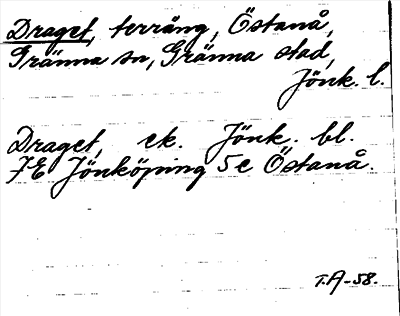 Draget, terräng, Östanå,
Gränna sn, Gränna stad,
Jönk. l.
Draget, ek. Jönk. bl.
7E Jönköping 5e Östanå.
T.A-58.